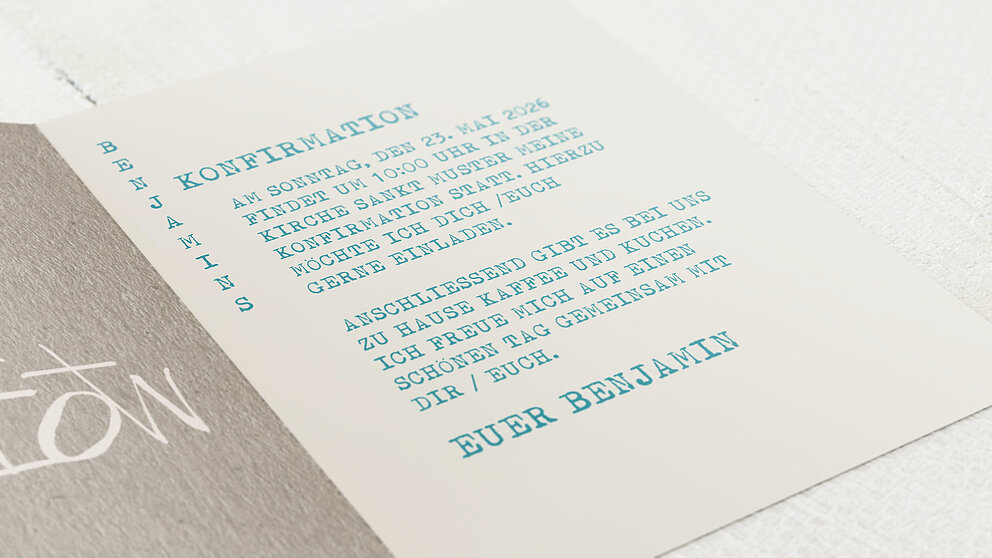 BENJAMINS
KONFIRMATION
AM SONNTAG, DEN 23. MAI 2026
FINDET UM 10:00 UHR IN DER
KIRCHE SANKT MUSTER MEINE
KONFIRMATION STATT. HIERZU
MÖCHTE ICH DICH /EUCH
GERNE EINLADEN.
ANSCHLIESSEND GIBT ES BEI UNS
ZU HAUSE KAFFEE UND KUCHEN.
ICH FREUE MICH AUF EINEN
SCHÖNEN TAG GEMEINSAM MIT
DIR / EUCH.
EUER BENJAMIN